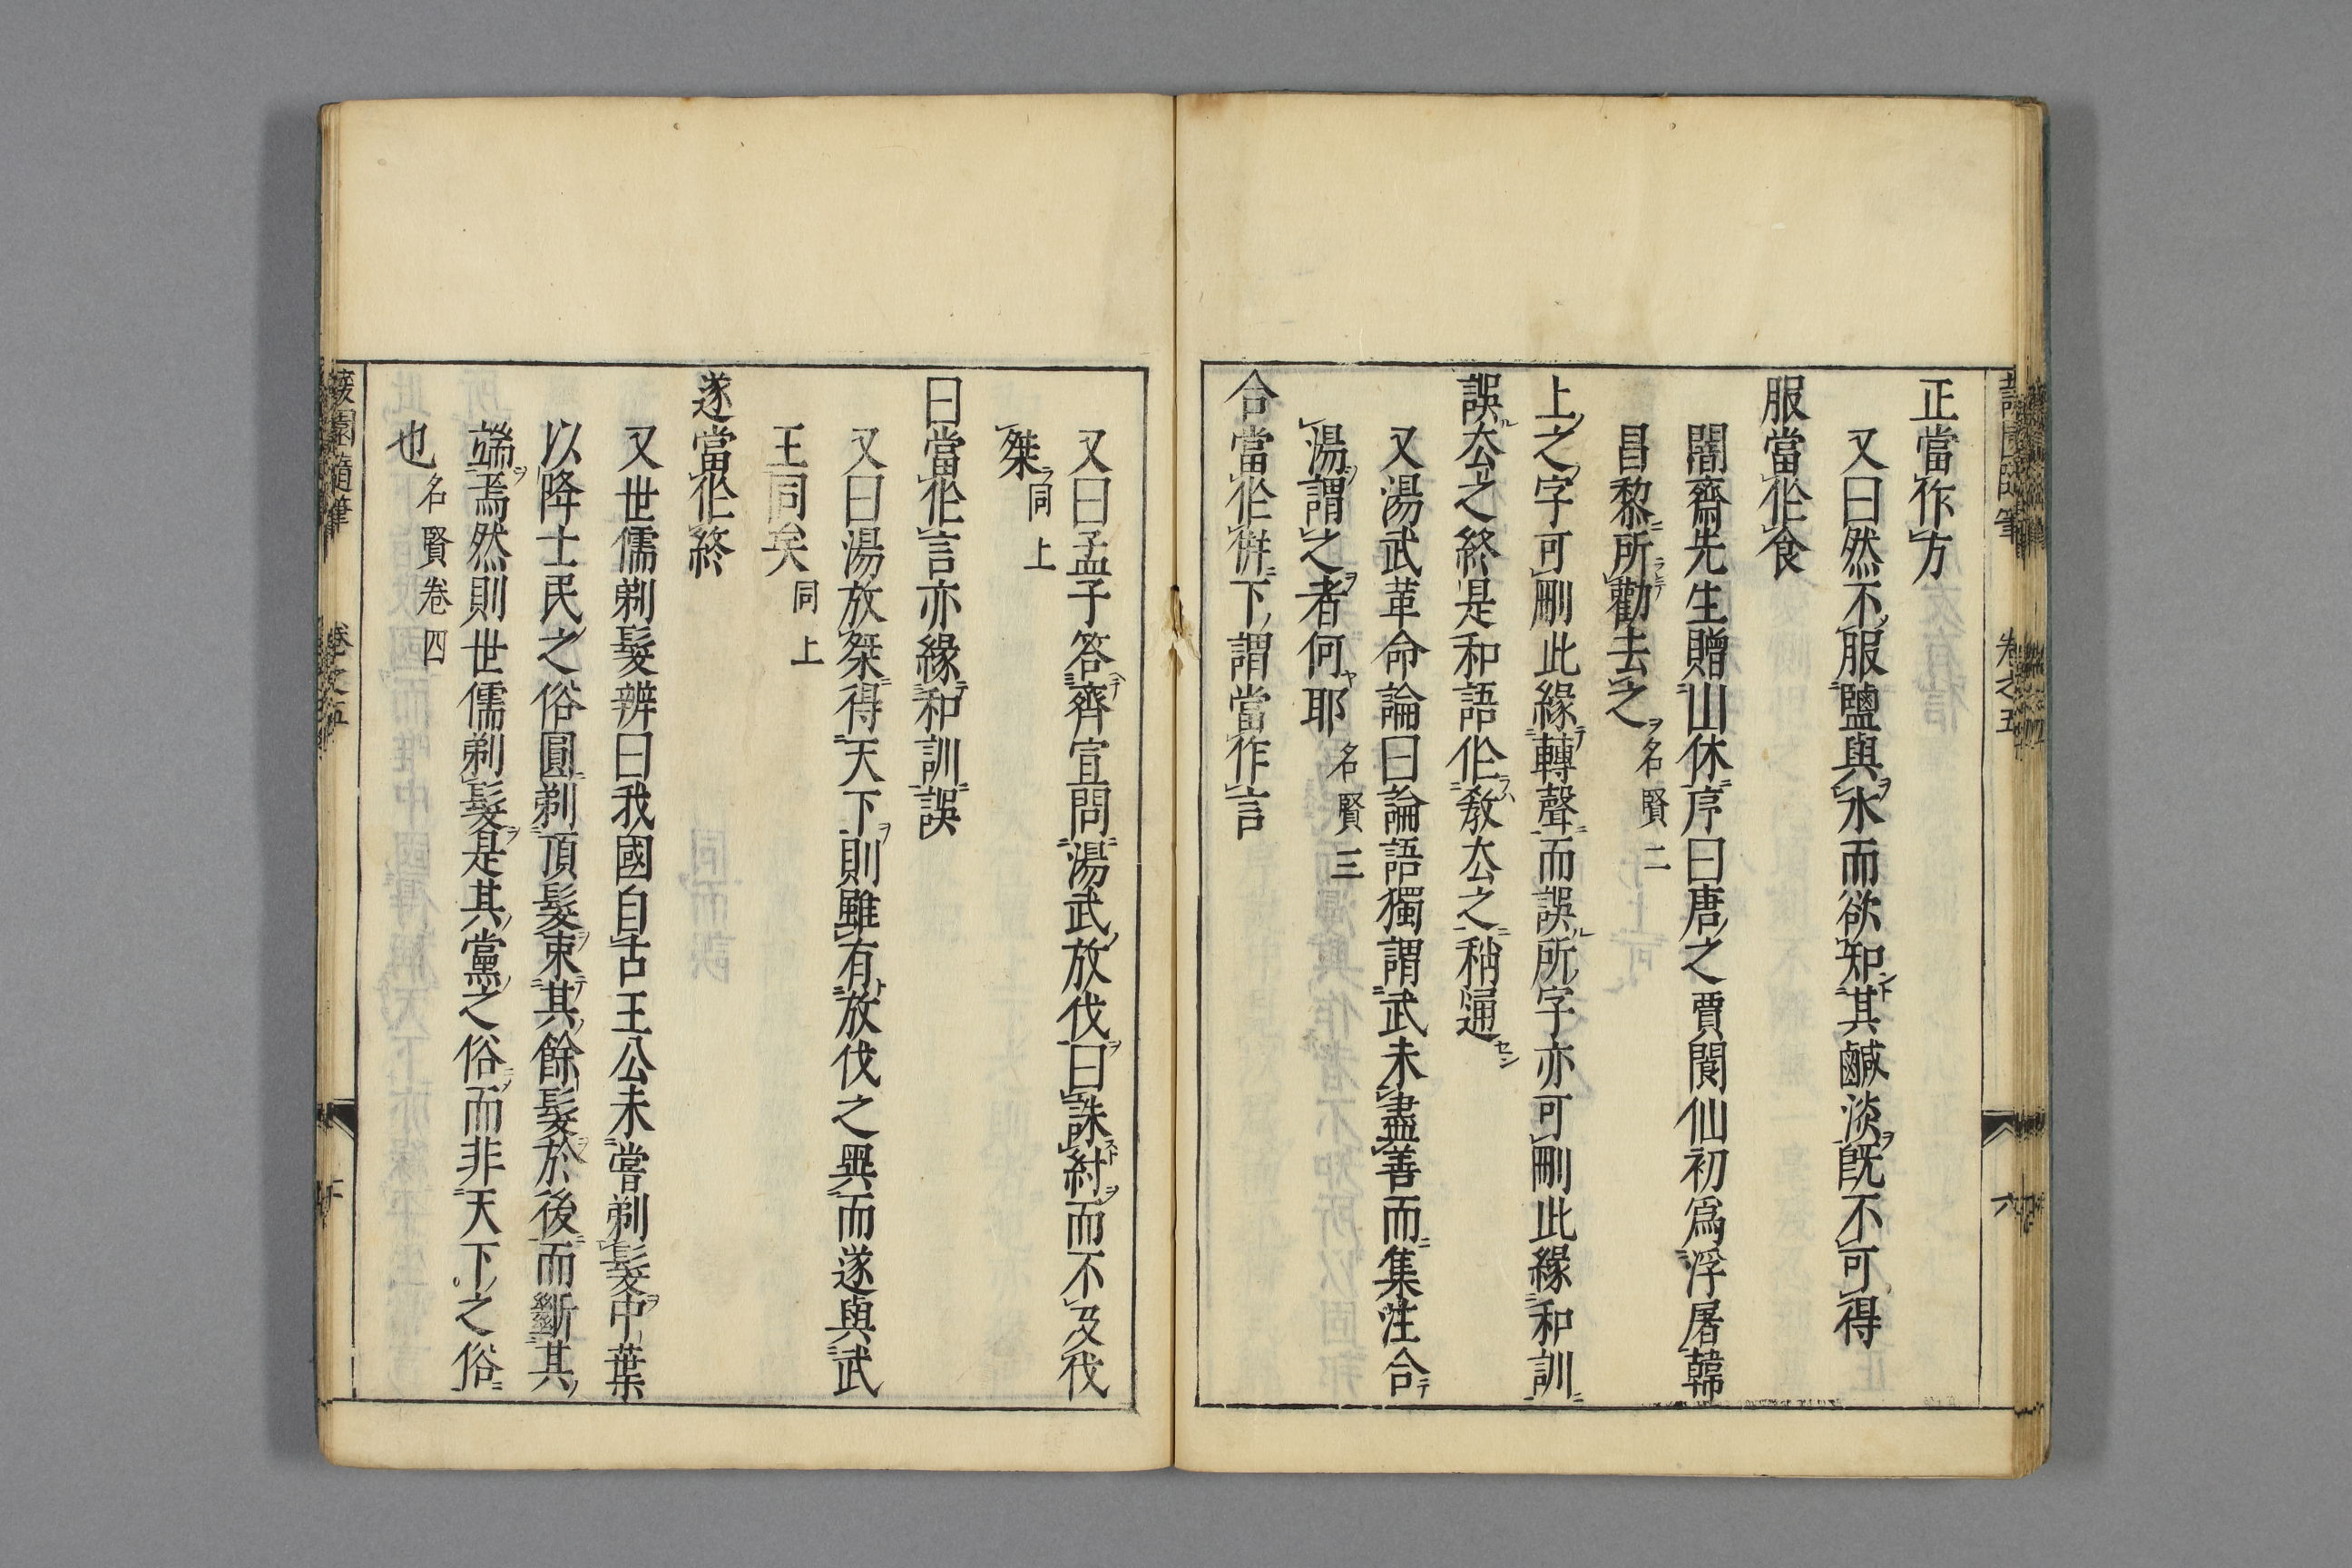 正當作方
又曰然不服鹽與水而欲知其鹹淡既不可得
服當作食
闇齋先生贈山休序曰唐之賈閬仙初爲浮屠韓
昌黎所勸去之 名賢二
上之字可刪此緣轉聲而誤所字亦可刪此緣和訓
誤厺之終是和語作教厺之稍通
又湯武革命論曰論語獨謂武未盡善而集注合
湯謂之者何耶 名賢三
合當作併下謂當作言
又曰孟子答齊宣問湯武放伐曰誅紂而不及伐
桀 同上
曰當作言亦緣和訓誤
又曰湯放桀得天下則雖有放伐之異而遂與武
王同矣 同上
遂當作終
又世儒剃髮辨曰我國自古王公未嘗剃髮中葉
以降士民之俗圓剃頂髮束其餘髮於後而斷其
端焉然則世儒剃髮是其黨之俗而非天下之俗
也 名賢卷四
蘐園隨筆 卷之五